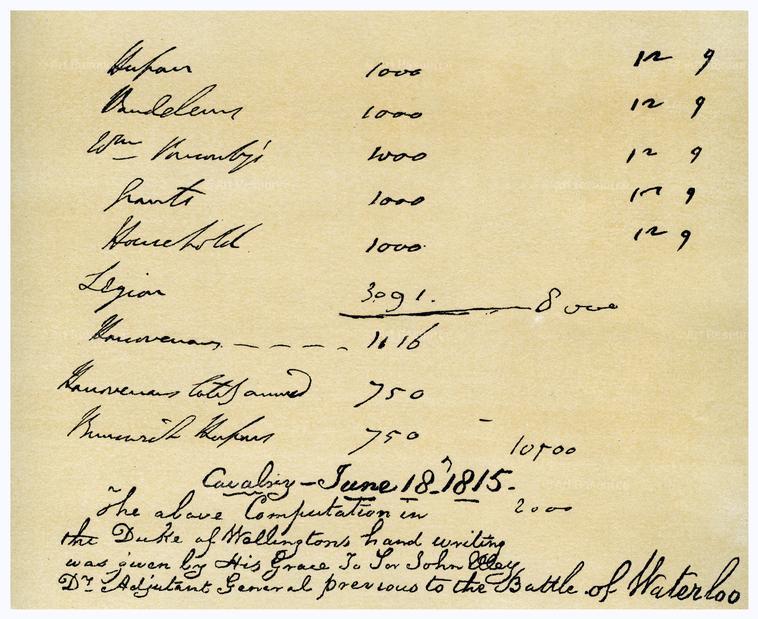 Hussar 1000 12 9
Vandeleurs 1000 12 9
Wm Ponsonby's 1000 12 9
Grants 1000 12 9
Household 1000 12 9
Legion 3091. 8000
Hanoverians - - - - 1116
Hanoverians lately arrived 750
Brunswick Hussars 750 10500
Cavalry - June 18th 1815.
The above Computation in 2000
the Duke of Wellingtons hand writing
was given by His Grace To Sir John Elley
Dy. Adjutant General previous to the Battle of Waterloo